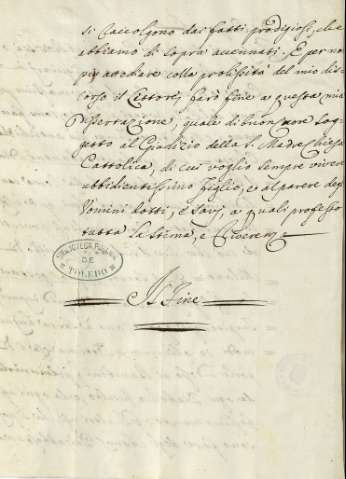 si raccolgono dai fatti prodigiosi, che
abbiamo di sopra accennati. E per non
più attediare colla prolissità del mio dis-
corso il Lettore, farò fine a questa mia
Dissertazione, quale di buon cuore sog-
getto al Giudizio della S. Madre Chiesa
Cattolica, di cui voglio sempre vivere
ubbidientissimo figlio, e al parere degl'
Uomini dotti, e savj, a quali professo
tutta la stima, e
BIBLIOTECA
DE
TOLEDO
Il Fine